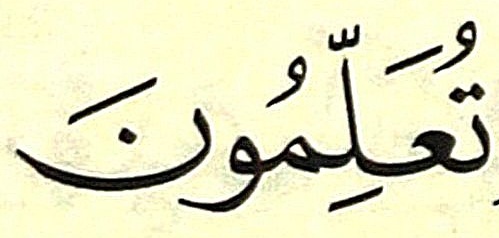 تُعَلِّمُونَ